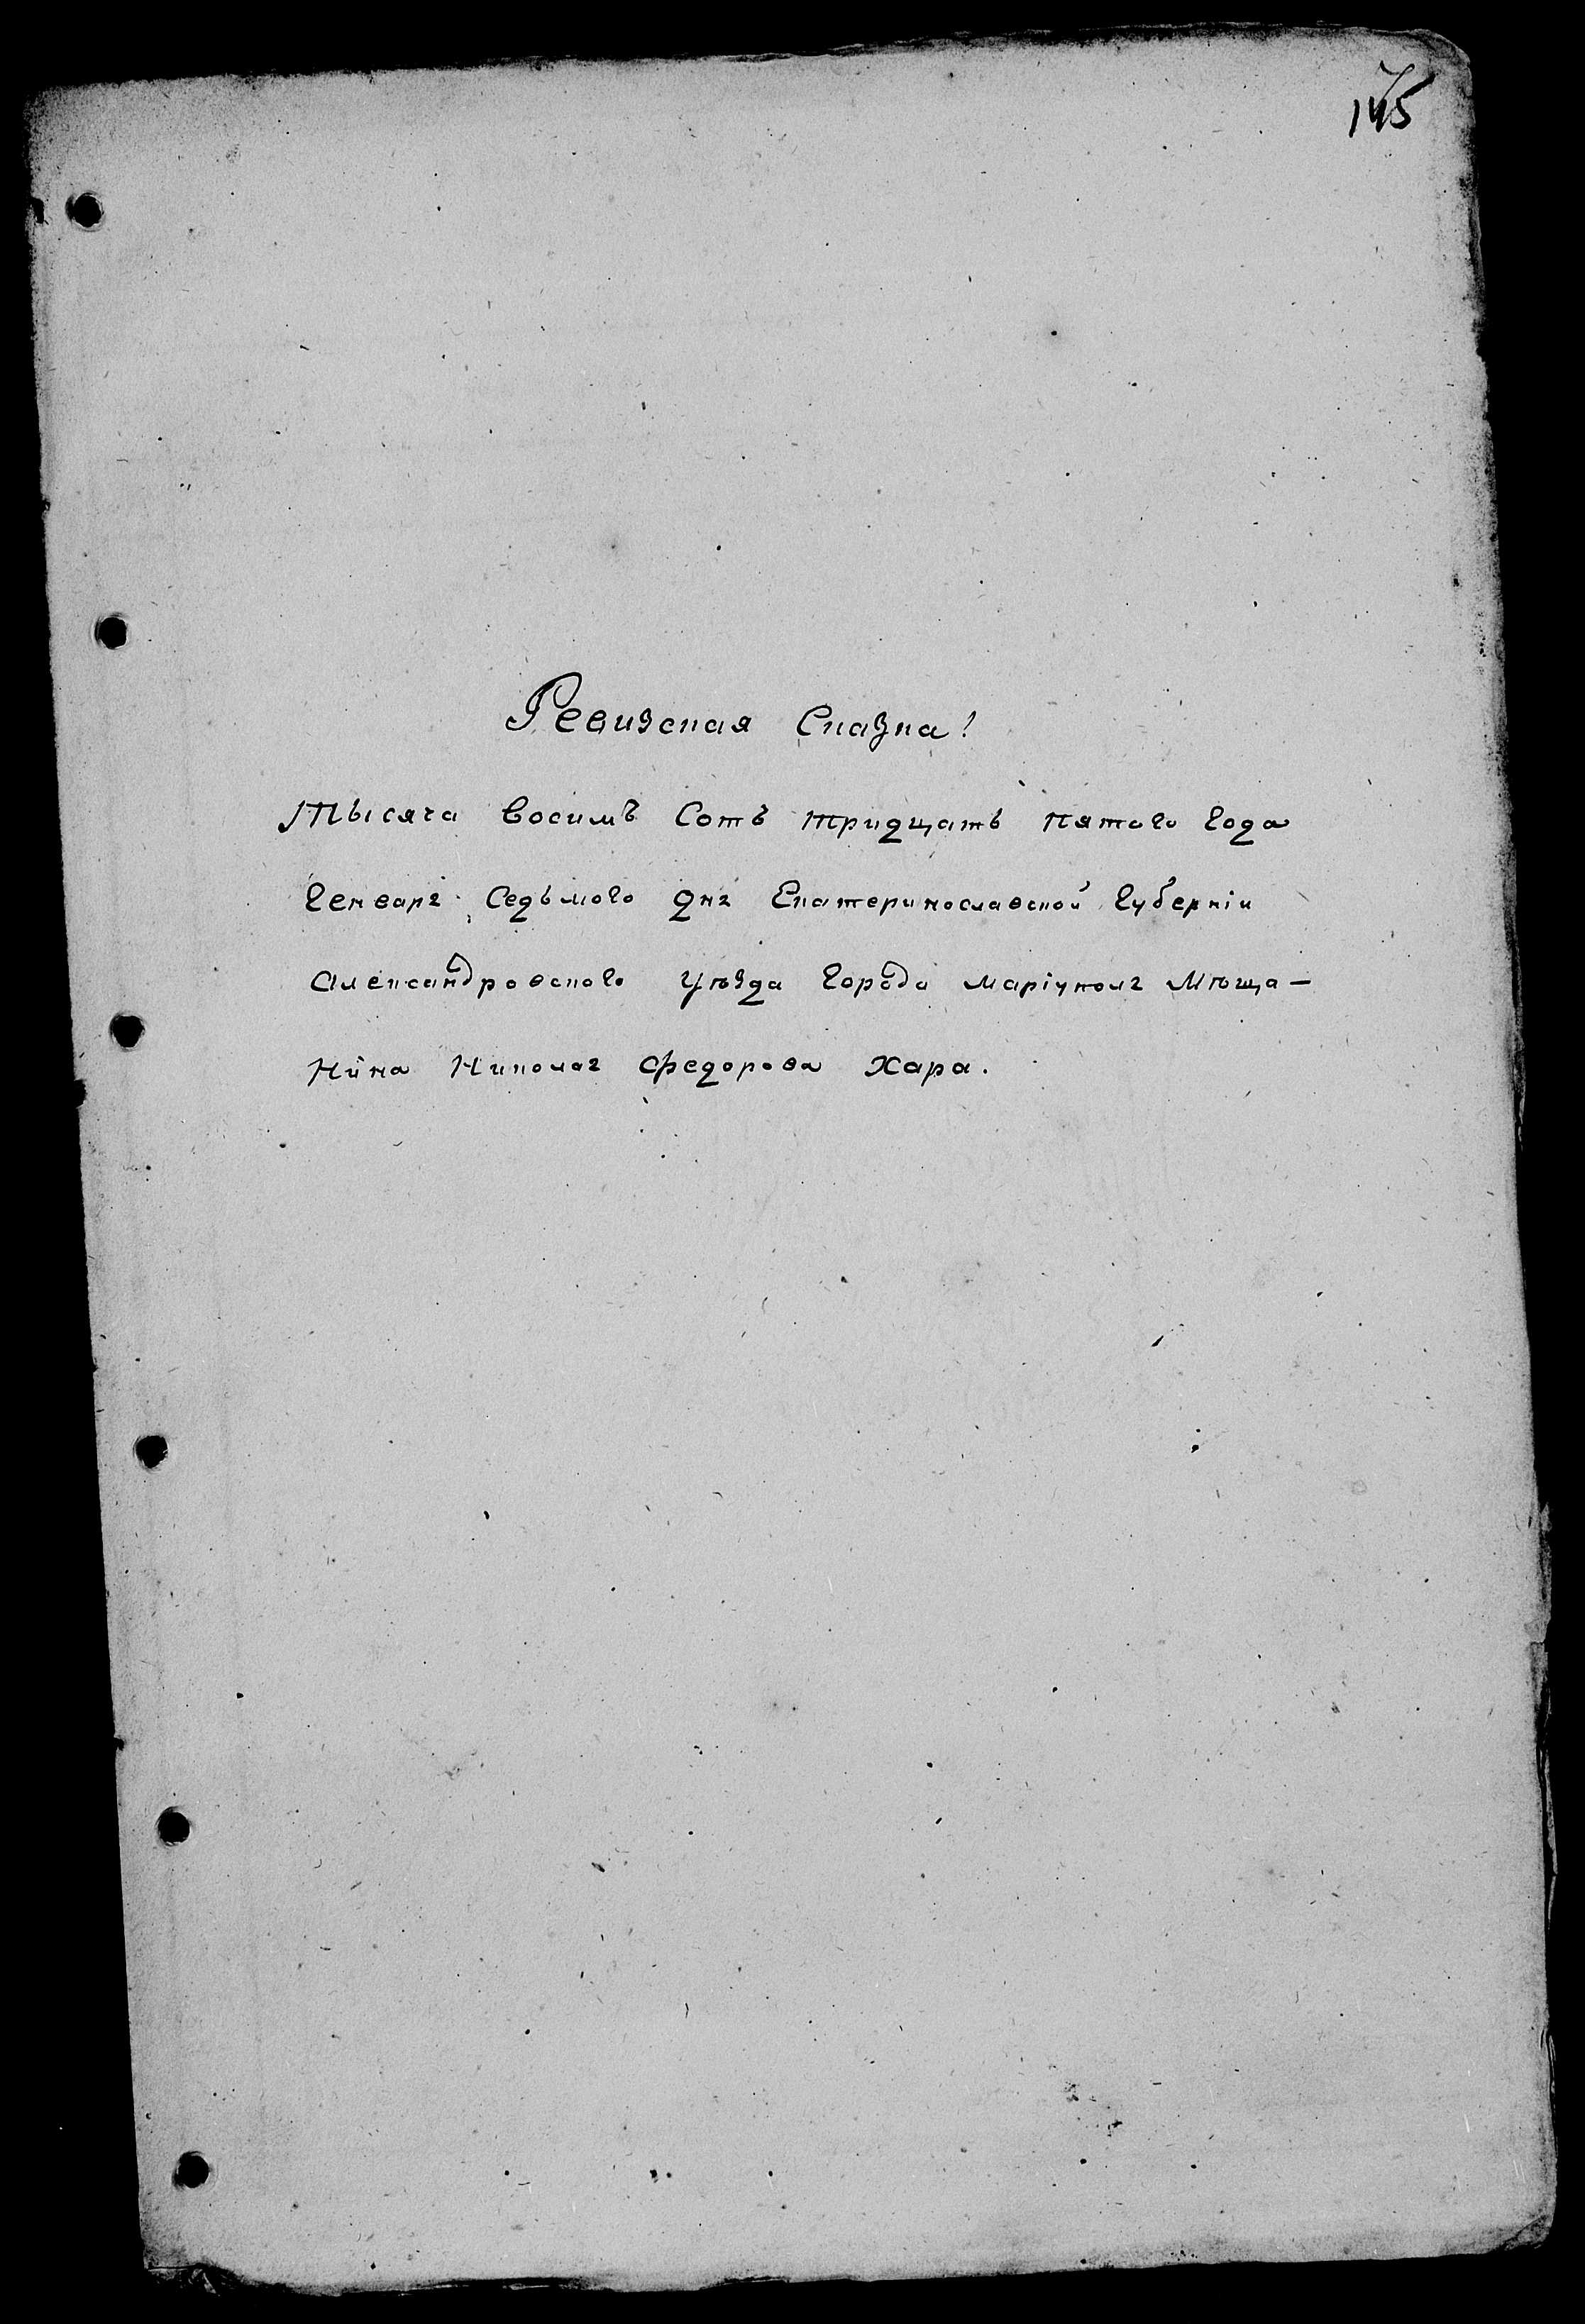 Ревизская Сказка!
Тысяча восимъ Сотъ тридцать пятого года
Генваря Седьмого дня Екатеринославской Губерніи
Александровского уѣзда города Маріуполя Мѣща-
нина Николая Федорова Хара.